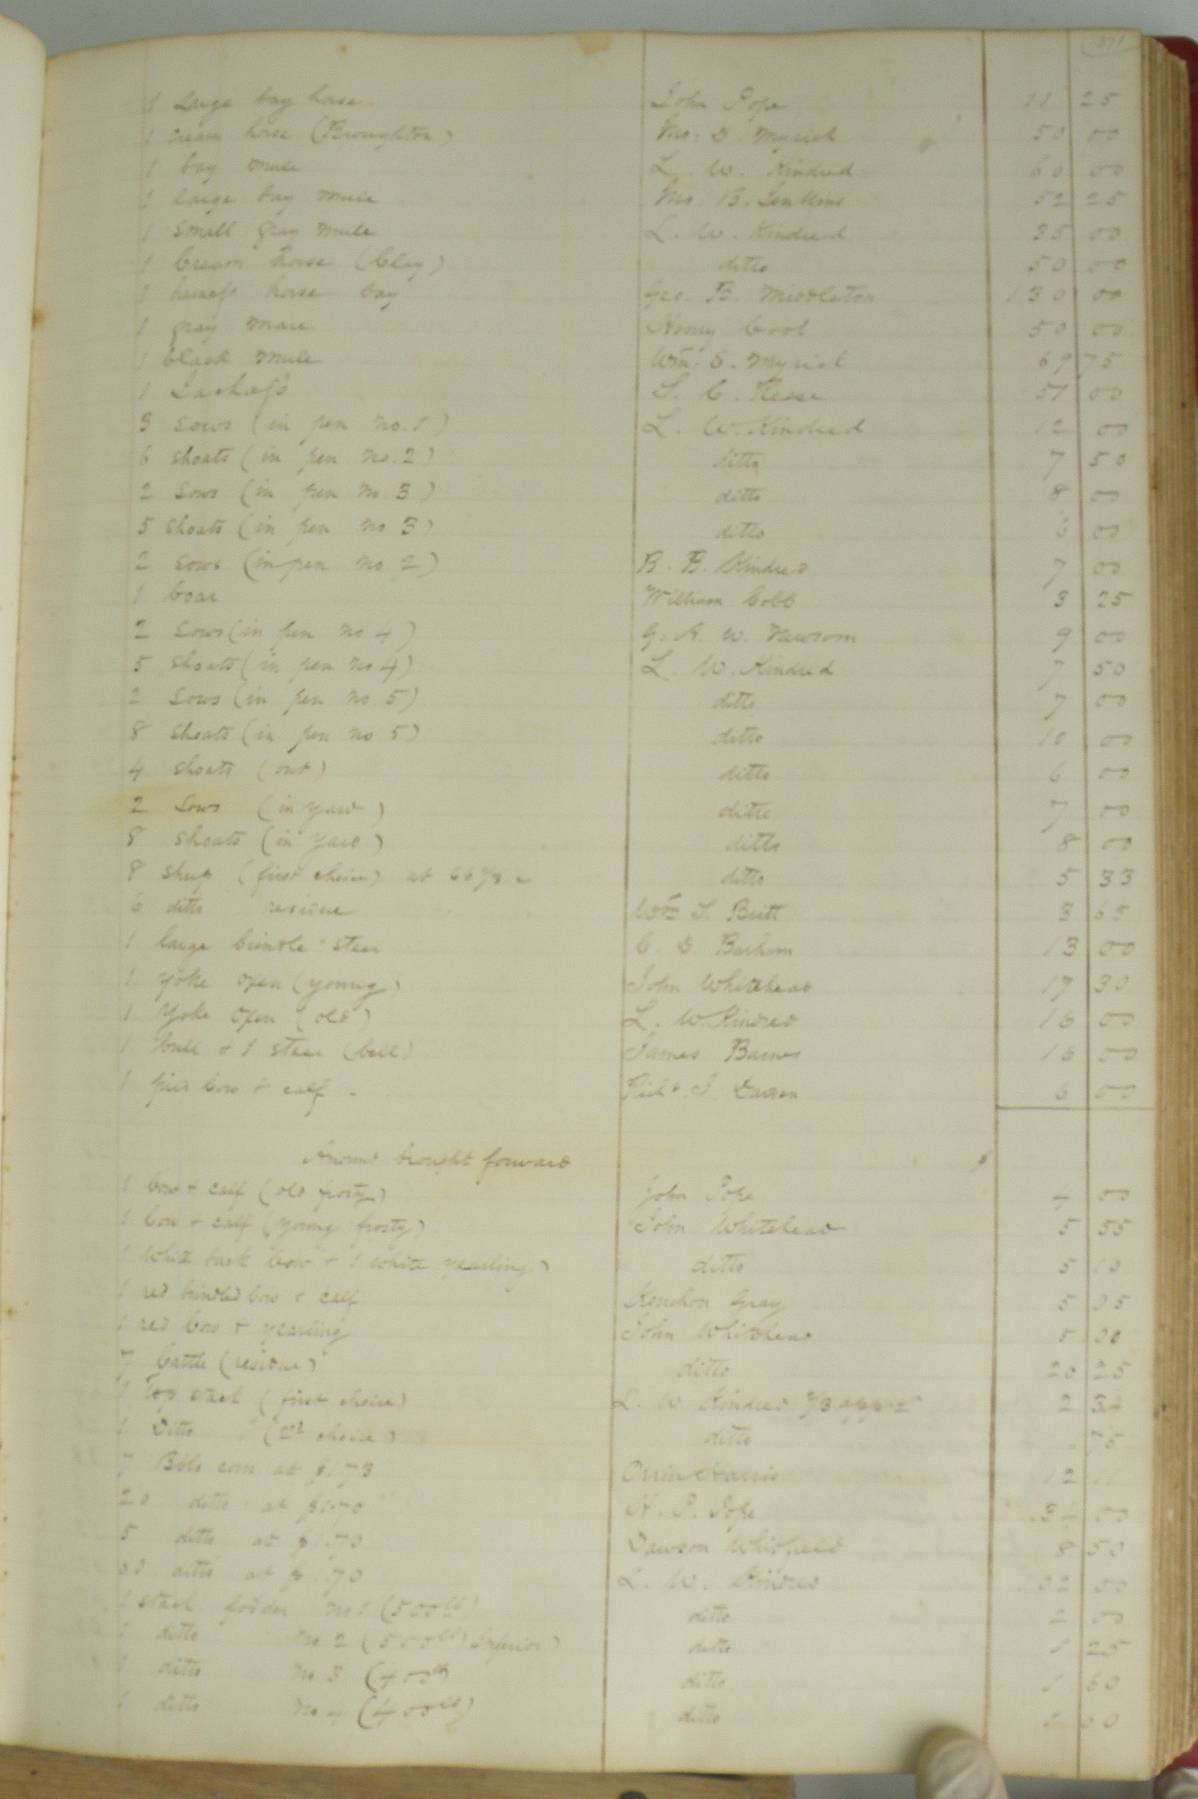 371
1 Large bay horse John Pope 11 25
1 cream horse (Broughton) Mo. D. Myrick 50 00
1 bay mule L. W. Kindred 60 00
1 large bay mule Mo. B. Jenkins 52 25
1 small gray mule L. W. Kindred 35 00
1 Cream horse (Clay) ditto 50 00
1 harness horse bay Geo. B. Middleton 130 00
1 gray mare 50 00
1 black mule Wm. S. Myrick 69 75
1 00
3 sows (in pen no. 1) L. W. Kindred 12 00
6 shoats (in pen no. 2) ditto 7 50
2 sows (in pen no 3) ditto 8 00
5 shoats (in pen no 3) ditto 6 00
2 sows (in pen no 2) B. B. Kindred 7 00
1 boar William Cobb 3 25
2 sows (in pen no 4) G. A. W. Newsom 9 00
5 shoats (in pen no 4) L. W. Kindred 7 50
2 sows (in pen no 5) ditto 7 00
8 shoats (in pen no 5) ditto 10 00
4 shoats (out) ditto 6 00
2 sows (in yard) ditto 7 00
8 shoats (in yard) ditto 8 00
8 sheep (first choice) at 66 2/3 c ditto 5 33
6 ditto residue Wm S. Britt 3 65
1 large brindle steer C. D. Barham 13 00
1 yoke oxen (young) John Whitehead 17 30
1 Yoke Oxen (old) L. W. Kindred 16 00
1 bull & 1 steer (bell) James Barnes 16 00
1 pied Cow & calf 6 00
Amount brought forward $
1 Cow & calf (old frosty) John Pope 4 00
1 Cow & calf (young frosty) John Whitehead 5 55
1 White back Cow & 1 white yearling ditto 5 10
1 red brindled Cow & calf Gray 5 05
1 red Cow & yearling John Whitehead 5 00
7 Cattle (residue) ditto 20 25
1 top stack (first choice) L. W. Kindred 2 34
1 Ditto (2d choice) ditto 75
7 Bbls corn at $1.73 Orrin Harris 12 11
20 ditto at $1.70 H. P. Pope 34 00
5 ditto at $1.70 Dawson Whitfield 8 50
60 ditto at $1.70 L. W. Kindred 102 00
1 stack fodder no 1 (500 lb) ditto 2 00
1 ditto no 2 (500 lb) Inferior) ditto 1 25
1 ditto no 3 (400 lb) ditto 1 60
1 ditto no 4 (400 lb) ditto